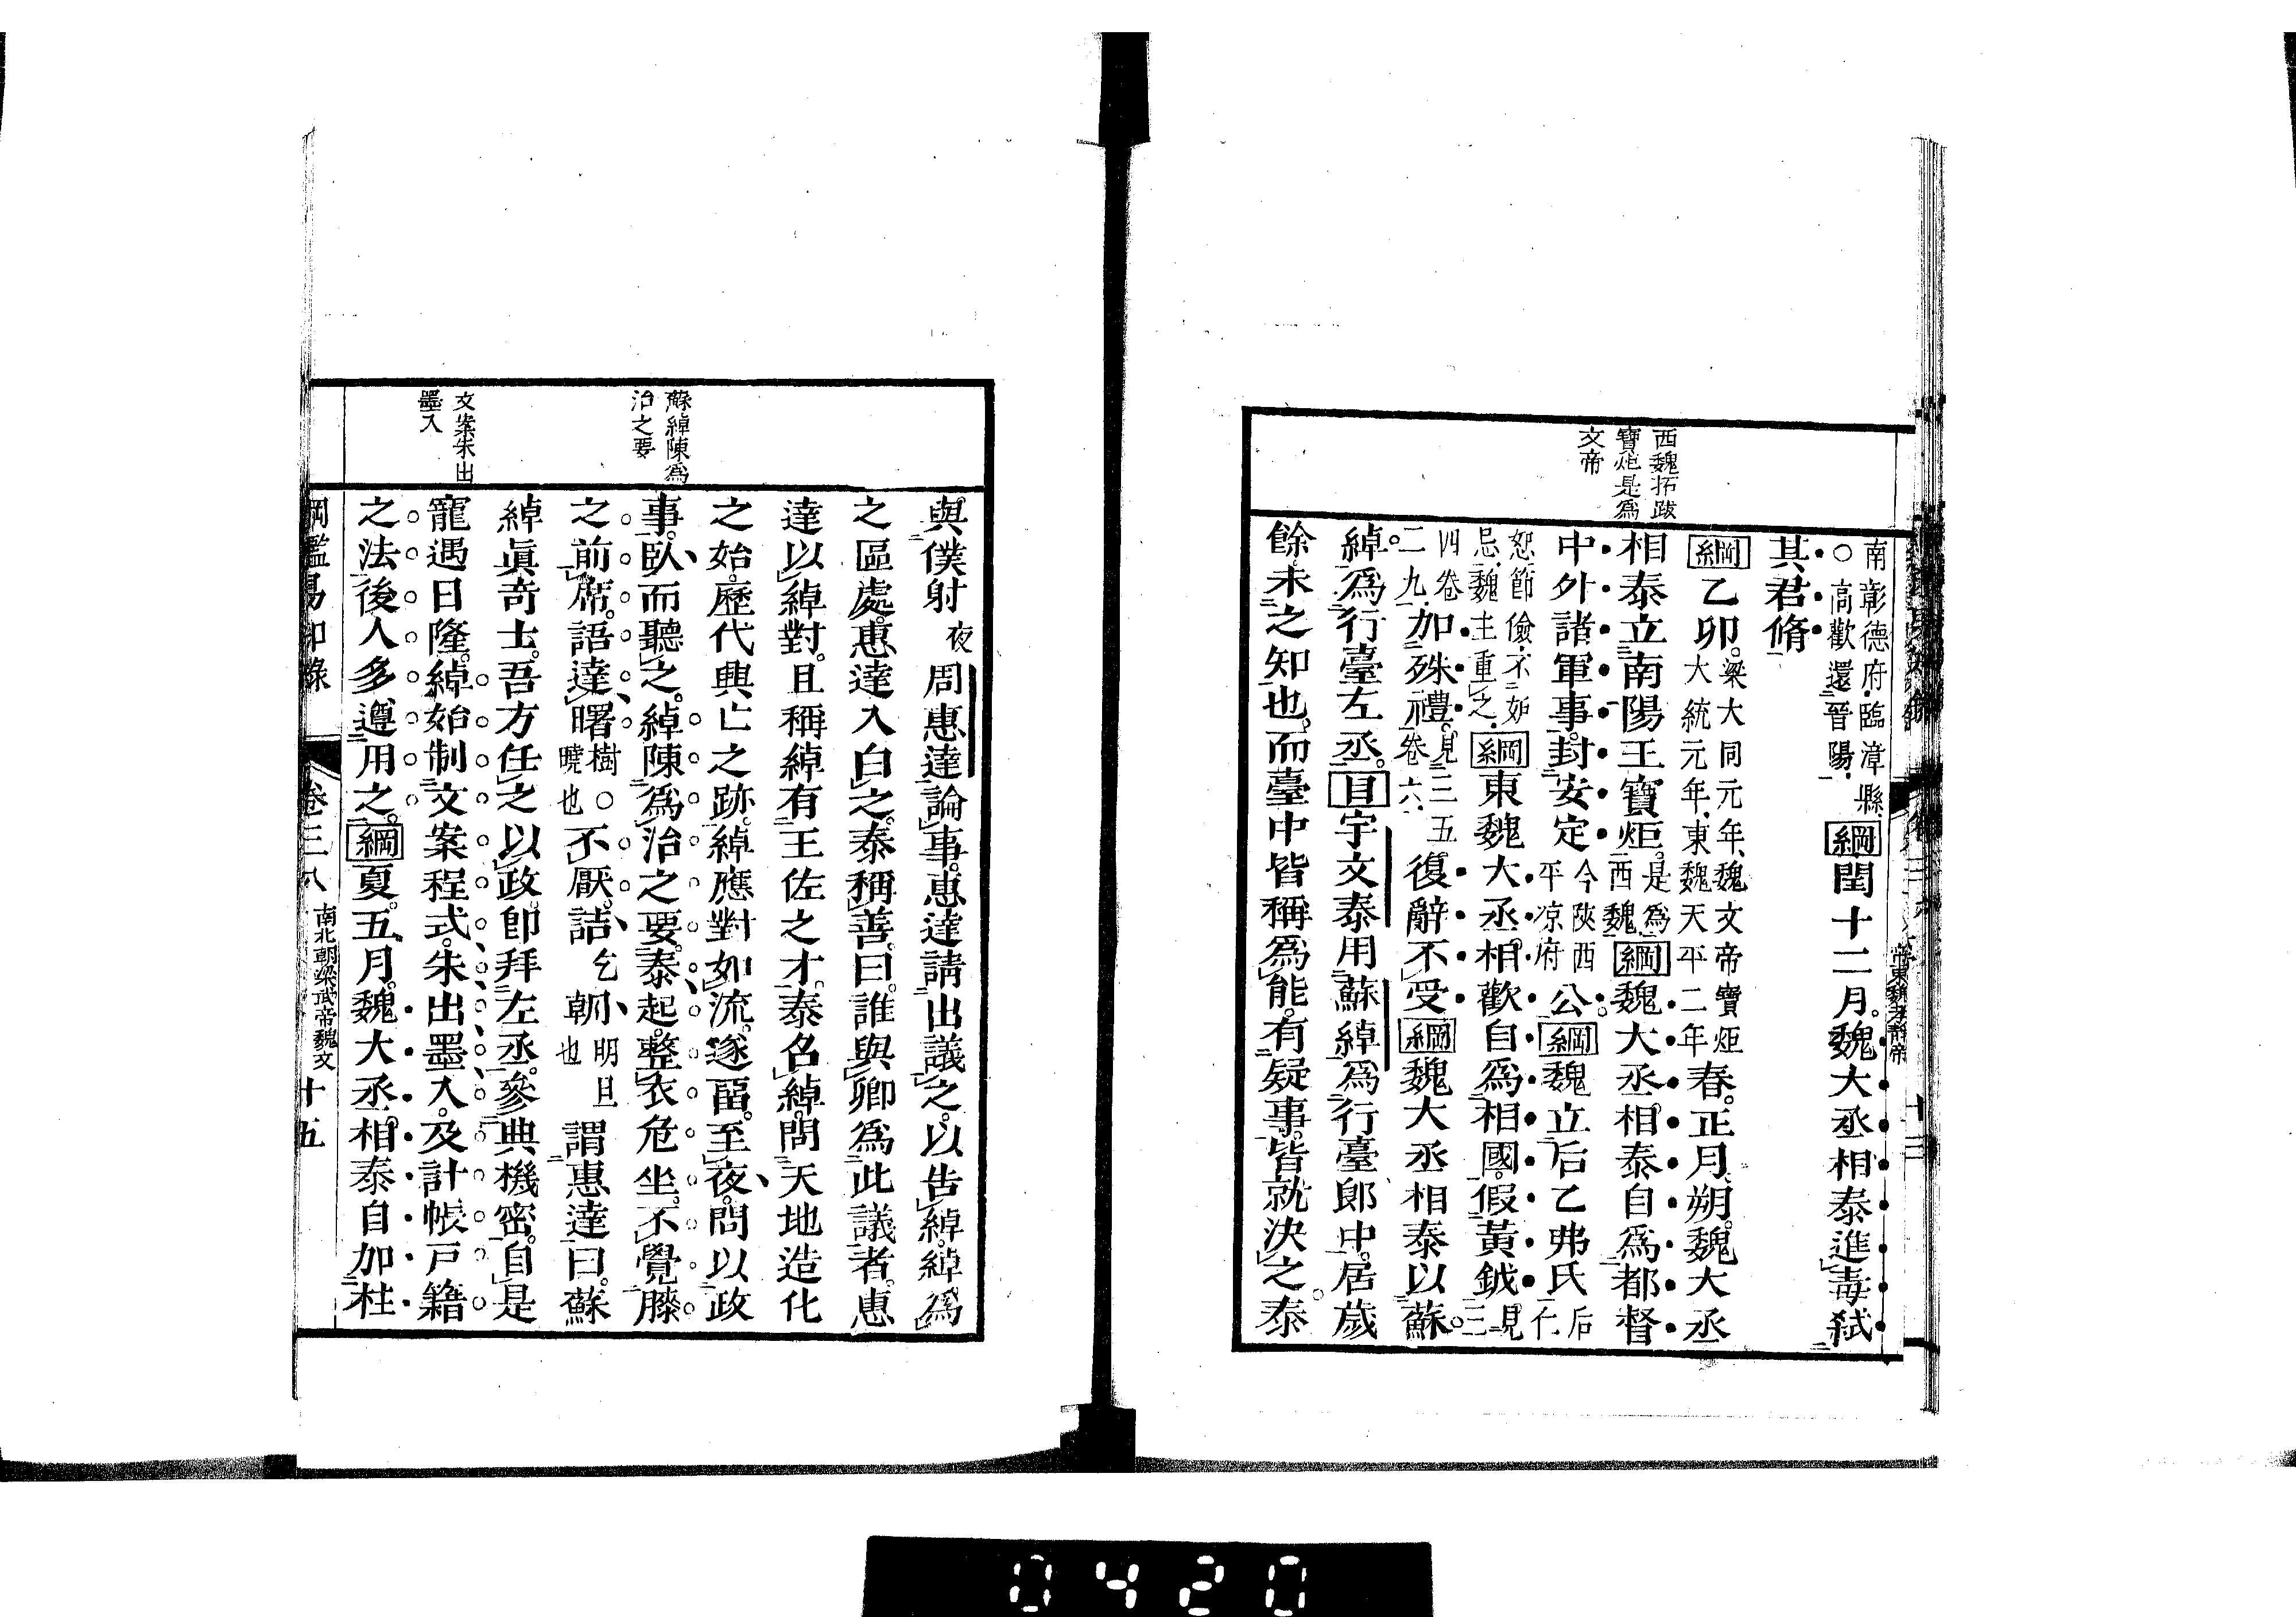 西魏拓跋
寶炬是爲
文帝
南彰德府臨漳縣
○高歡還晉陽
綱閏十二月魏大丞相泰進毒弑
其君脩
綱乙卯
梁大同元年魏文帝寶炬
大統元年東魏天平二年
春正月朔魏大丞
相泰立南陽王寶炬
是爲
西魏
綱魏大丞相泰自爲都督
中外諸軍事封安定
今陝西
平凉府
公綱魏立后乙弗氏
后仁
恕節儉不妬
忌魏主重之
綱東魏大丞相歡自爲相國假黃鉞
見三
四卷
二九
加殊禮
見三五
卷六
復辭不受綱魏大丞相泰以蘇
綽爲行臺左丞目宇文泰用蘇綽爲行臺郎中居歲
餘未之知也而臺中皆稱爲能有疑事皆就決之泰
蘇綽陳爲
治之要
文案朱出
墨入
與僕射
夜
周惠達論事惠達請出議之以告綽綽爲
之區處惠達入白之泰稱善曰誰與卿爲此議者惠
達以綽對且稱綽有王佐之才泰名綽問天地造化
之始歷代興亡之跡綽應對如流遂畱至夜問以政
事臥而聽之綽陳爲治之要泰起整衣危坐不覺膝
之前席語達曙
樹○
曉也
不厭詰
乞
朝
明旦
也
謂惠達曰蘇
綽眞奇士吾方任之以政卽拜左丞參典機密自是
寵遇日隆綽始制文案程式朱出墨入及計帳戸籍
之法後人多遵用之綱夏五月魏大丞相泰自加柱
綱鑑易知錄
卷三八
南北朝梁武帝魏文
十五